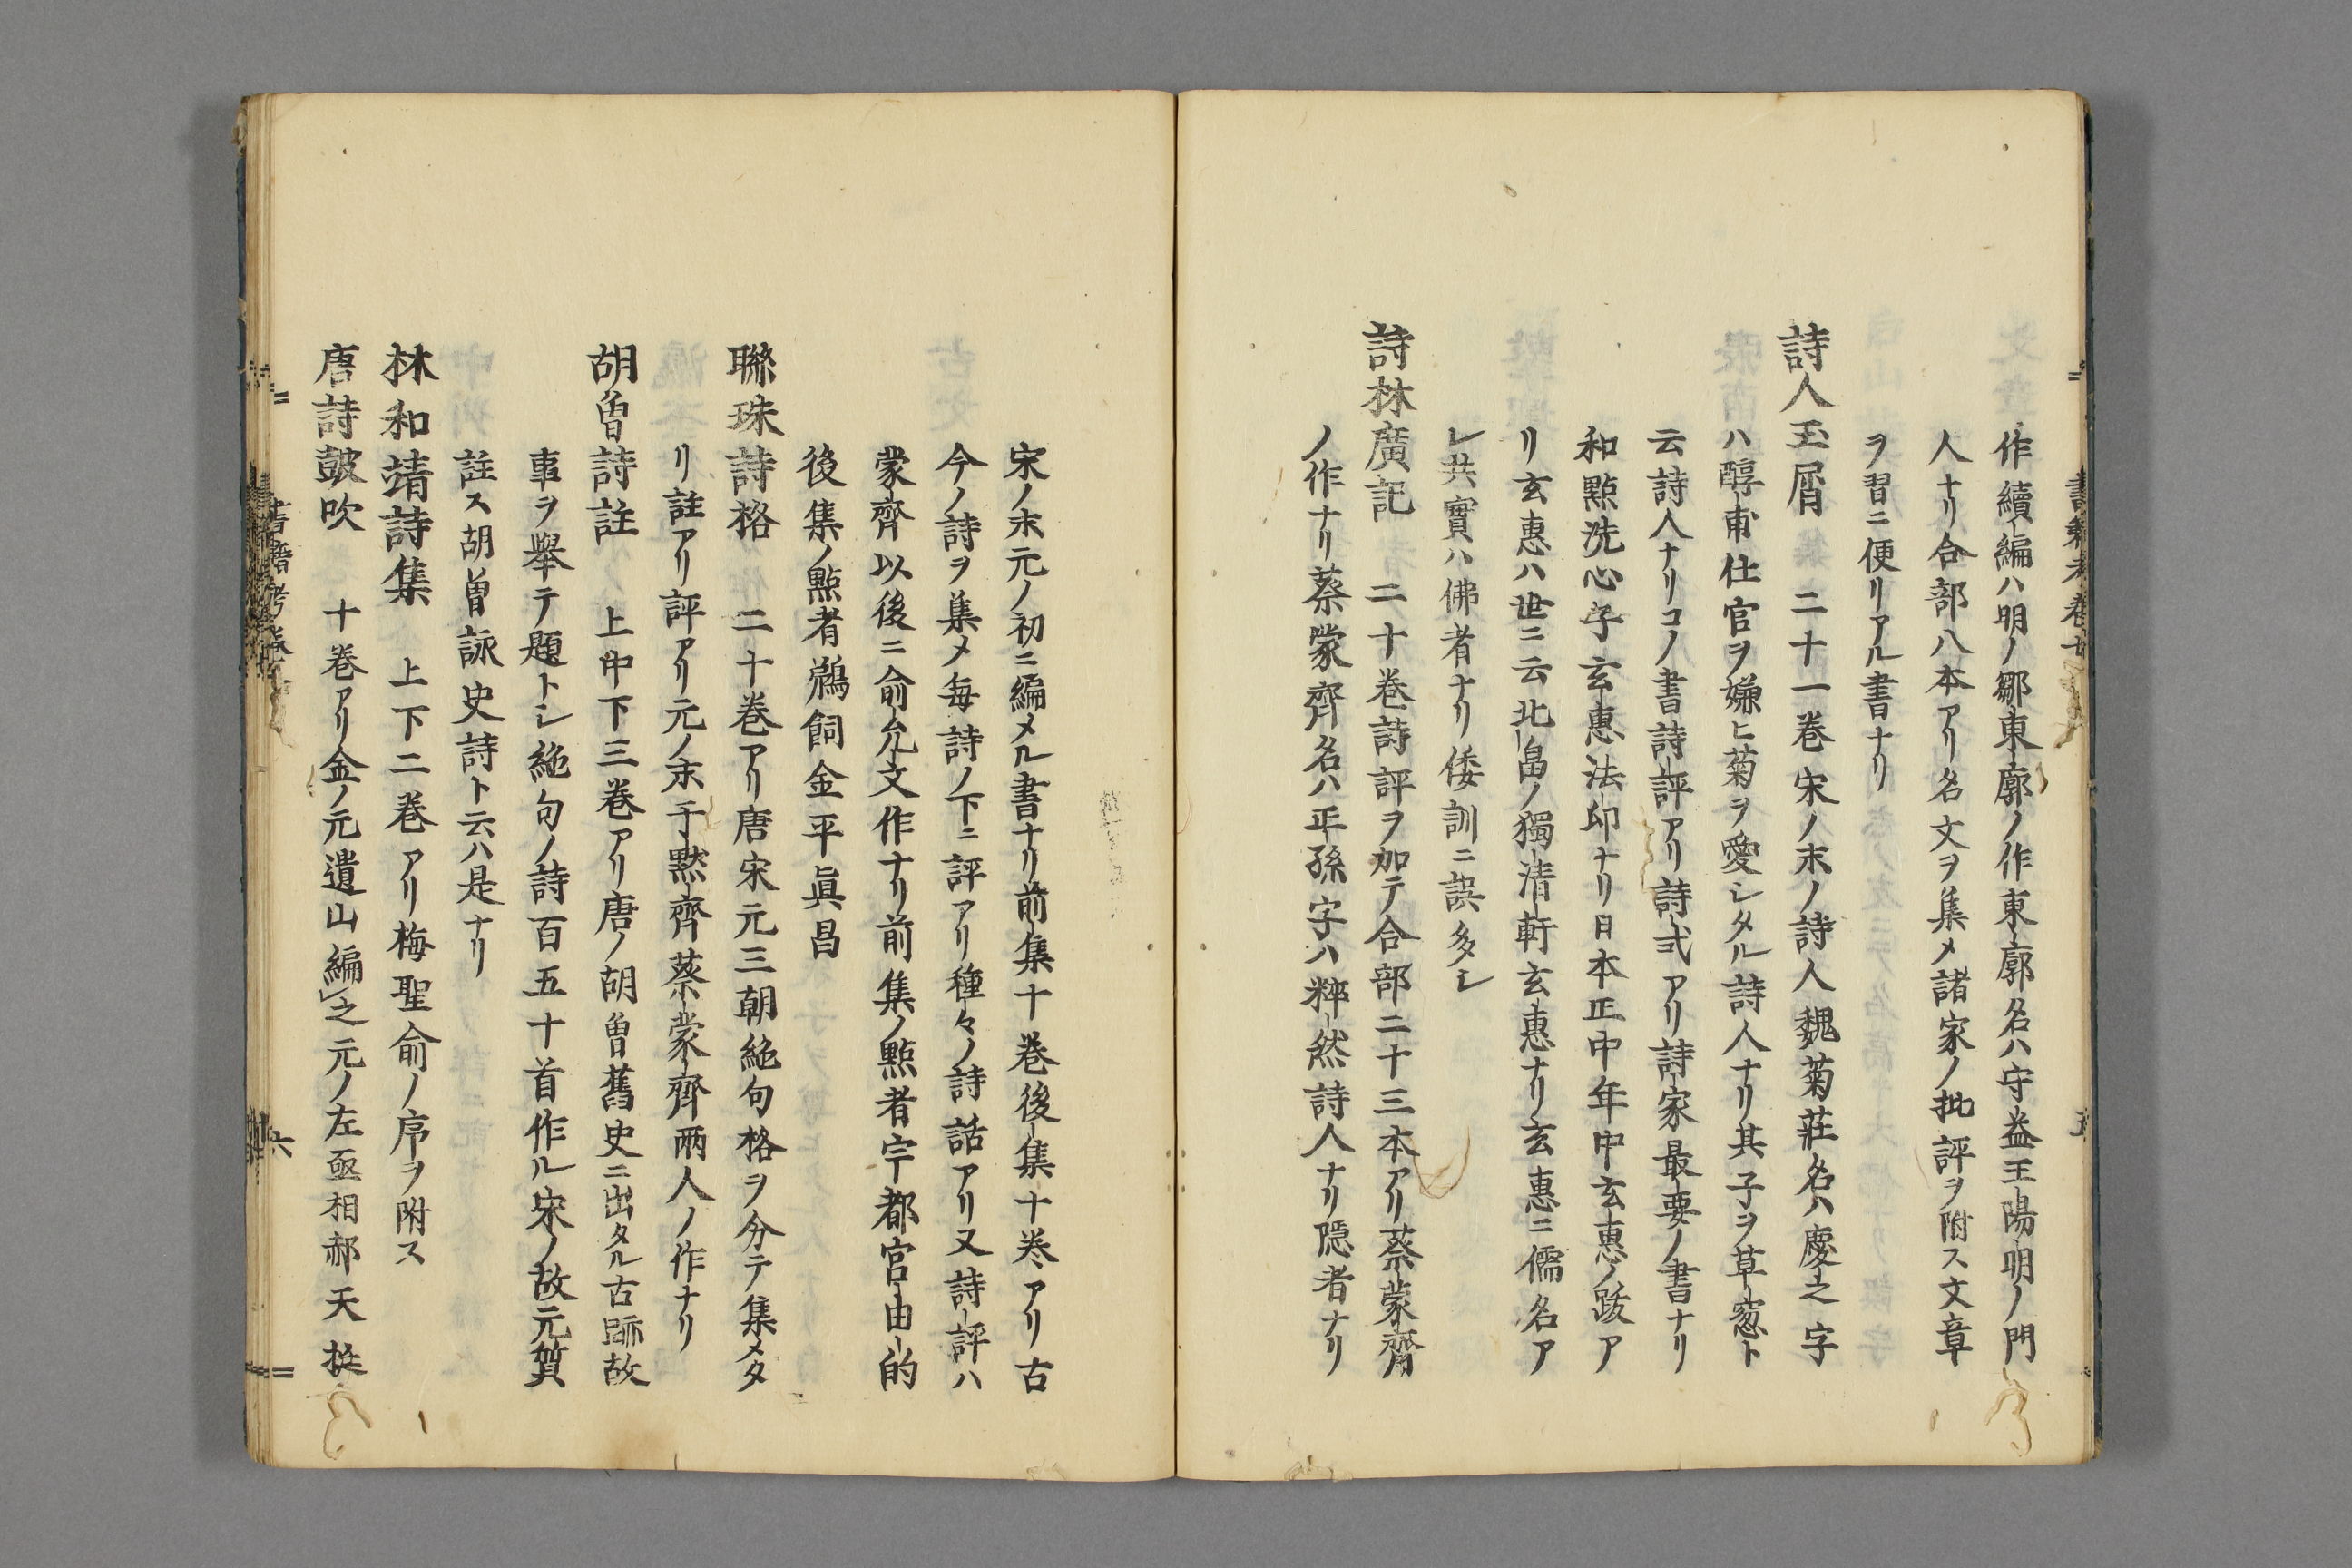 作續編ハ明ノ鄒東廓ノ作東廓名ハ守益王陽明ノ門
人ナリ合部八本アリ名文ヲ集メ諸家ノ批評ヲ附ス文章
ヲ習ニ便リアル書ナリ
詩人玉屑 二十一巻宋ノ末ノ詩人魏菊莊名ハ慶之字
ハ醇甫仕官ヲ嫌ヒ菊ヲ愛シタル詩人ナリ其子ヲ草窓ト
云詩人ナリコノ書詩評アリ詩式アリ詩家最要ノ書ナリ
和點洗心子玄惠法印ナリ日本正中年中玄惠ノ跋ア
リ玄惠ハ世ニ云北畠ノ獨清軒玄惠ナリ玄惠ニ儒名ア
レ共實ハ佛者ナリ倭訓ニ誤多シ
詩林廣記 二十巻詩評ヲ加テ合部二十三本アリ蔡蒙齊
ノ作ナリ蔡蒙齊名ハ正孫字ハ粹然詩人ナリ隠者ナリ
宋ノ末元ノ初ニ編メル書ナリ前集十巻後集十巻アリ古
今ノ詩ヲ集メ毎詩ノ下ニ評アリ種々ノ詩話アリ又詩評ハ
蒙齊以後ニ俞允文作ナリ前集ノ點者宇都宮由的
後集ノ點者鵜飼金平眞昌
聯珠詩格 二十巻アリ唐宋元三朝絶句格ヲ分テ集メタ
リ註アリ評アリ元ノ末于黙齊蔡蒙齊兩人ノ作ナリ
胡曾詩註 上中下三巻アリ唐ノ胡曾舊史ニ出タル古跡故
事ヲ舉テ題トシ絶句ノ詩百五十首作ル宋ノ故元賀
註ス胡曾詠史詩ト云ハ是ナリ
林和靖詩集 上下二巻アリ梅聖俞ノ序ヲ附ス
唐詩皷吹 十巻アリ金ノ元遺山編之元ノ左亟相郝天挺
六